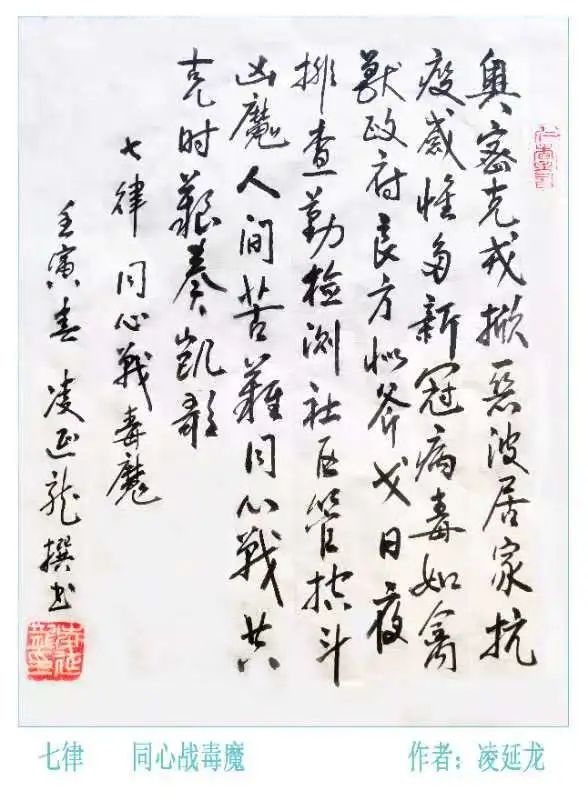 奥密克戎掀恶波居家抗
疫感慨多新冠病毒如禽
獸政府良方似斧戈日夜
排查勤检测社区管控斗
凶魔人间苦難同心戰共
克时艱奏凯歌
七律 同心戰毒魔
壬寅春 凌延龍撰书
七律 同心战毒魔 作者：凌延龙